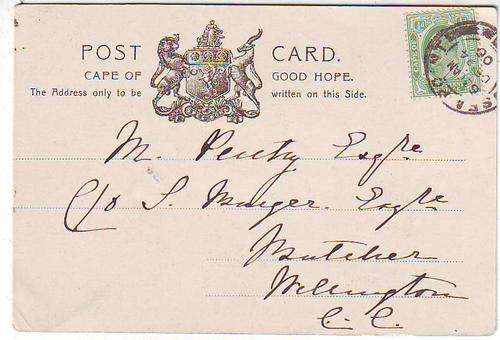 POST CARD.
CAPE OF GOOD HOPE.
The Address only to be written on this Side.
M. Pentry Esqre
C/o S. Munger. Esqre
Butcher
Wellington
C. C.